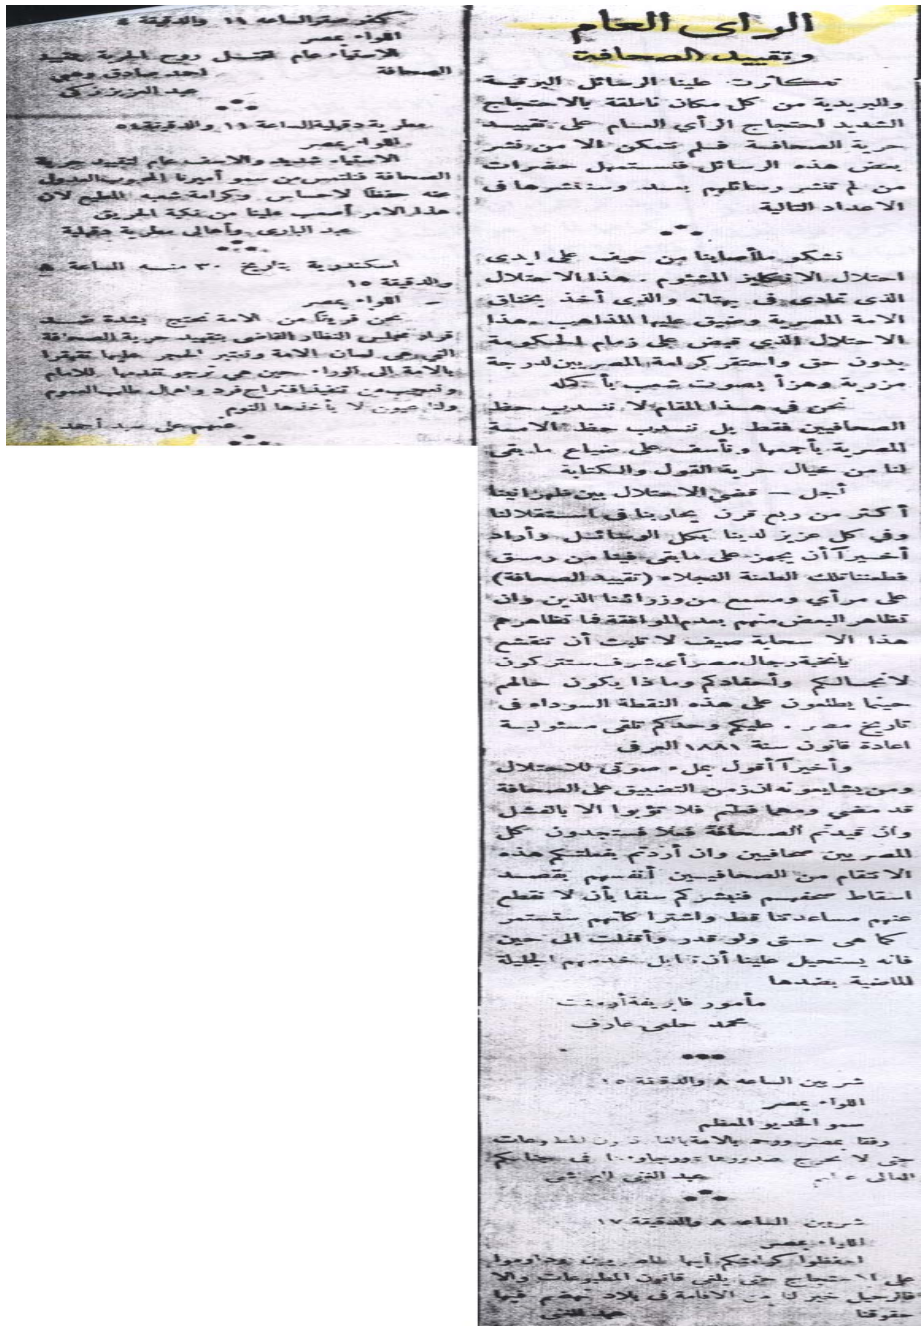 الرأى العام
وتقييد الصحافة
تكاثرت علينا الرسائل البرقية
والبريدية من كل مكان ناطقة بالاحتجاج
الشديد احتجاج الرأي العام على تقييد
حرية الصحافة فلم نتمكن الا من نشر
بعض هذه الرسائل فنستميل حضرات
من لم تنشر رسائلهم بعد وسننشرها في
الاعداد التالية
نشكو ما أصابنا من حيف على ايدى
احتلال الانكليز المشئوم. هذا الاحتلال
الذى تمادى في بهتانه والذى أخذ بخناق
الامة المصرية وضيق عليها المذاهب. هذا
الاحتلال الذي قبض على زمام الحكومة
بدون حق واحتقر كرامة المصريين لدرجة
مزرية وهزأ بصوت شعب بأكمله
نحن في هذا المقام لا نندب حظ
الصحافيين فقط بل نندب حظ الامة
المصرية بأجمعها ونأسف على ضياع ما بقى
لنا من خيال حرية القول والكتابة
أجل — قضى الاحتلال بين ظهرانينا
أكثر من ربع قرن يحاربنا في استقلالنا
وفي كل عزيز لدينا بكل الوسائل وأراد
أخيراً أن يجهز على مابقى فينا من رمق
فطعننا تلك الطعنة النجلاء (تقييد الصحافة)
على مرأى ومسمع من وزرائنا الذين وان
تظاهر البعض منهم بعدم الموافقة فما تظاهرهم
هذا الا سحابة صيف لا تلبث أن تنقشع
يا نخبة رجال مصر أى شرف ستتركون
لانجالكم وأحفادكم وماذا يكون حالهم
حينما يطلعون على هذه النقطة السوداء في
تاريخ مصر. عليكم وحدكم تلقى مسئولية
اعادة قانون سنة ١٨٨١ العرفى
وأخيراً أقول بملء صوتى للاحتلال
ومن يشايعونه ان زمن التضييق على الصحافة
قد مضى ومهما فعلتم فلا تؤبوا الا بالفشل
وان قيدتم الصحافة فعلا فستجدون كل
المصريين صحافيين وان أردتم بفعلتكم هذه
الانتقام من الصحافيين أنفسهم بقصد
اسقاط صحفهم فنبشركم سلفا بأن لا نقطع
عنهم مساعدتنا قط واشتراكاتهم ستستمر
كما هى حتى ولو قدر وأقفلت الى حين
فانه يستحيل علينا أن نقابل خدمتهم الجليلة
الماضية بضدها
مأمور فابريقة أرمنت
محمد حلمى عارف
شربين الساعه ٨ والدقيقة ١٥
اللواء بمصر
سمو الخديو المعظم
رفقا بمصر ورحمة بالامة
حتى لا تحرج صدورها
عبد الغنى
شربين الساعه ٨ والدقيقة ١٧
اللواء بمصر
احفظوا كرامتكم أيها المصريون وداوموا
على الاحتجاج حتى يلغى قانون المطبوعات والا
فالرحيل خير لنا من الاقامة في بلاد تهضم فيها
حقوقنا عبد الغنى
كفر صقر الساعه ١٩ والدقيقة
اللواء بمصر
الاستياء عام لقتل روح الحرية بتقييد
الصحافة احمد صادق وهبى
عبد العزيز زكى
مطرية دقهلية الساعة ١٩ والدقيقة ٥٤
اللواء بمصر
الاستياء شديد والاسف عام لتقييد حرية
الصحافة فنلتمس من سمو أميرنا المحبوب العدول
عنه حفظاً لاحساس وكرامة شعبه المطيع لأن
هذا الامر أصعب علينا من نكبة الحريق
عبد البارى وأهالى مطرية دقهلية
اسكندرية بتاريخ ٣٠ منه الساعة ٥
والدقيقة ١٥
اللواء بمصر
نحن فريقاً من الامة نحتج بشدة ضد
قرار مجلس النظار القاضى بتقييد حرية الصحافة
التى هى لسان الامة ونعتبر الحجر عليها تقهقرا
بالامة الى الوراء حين هى ترجو تقدمها للامام
ونعجب من تنفيذ اقتراح فرد واهمال طلب العموم
ولنا عيون لا يأخذها النوم
عنهم على سيد أحمد